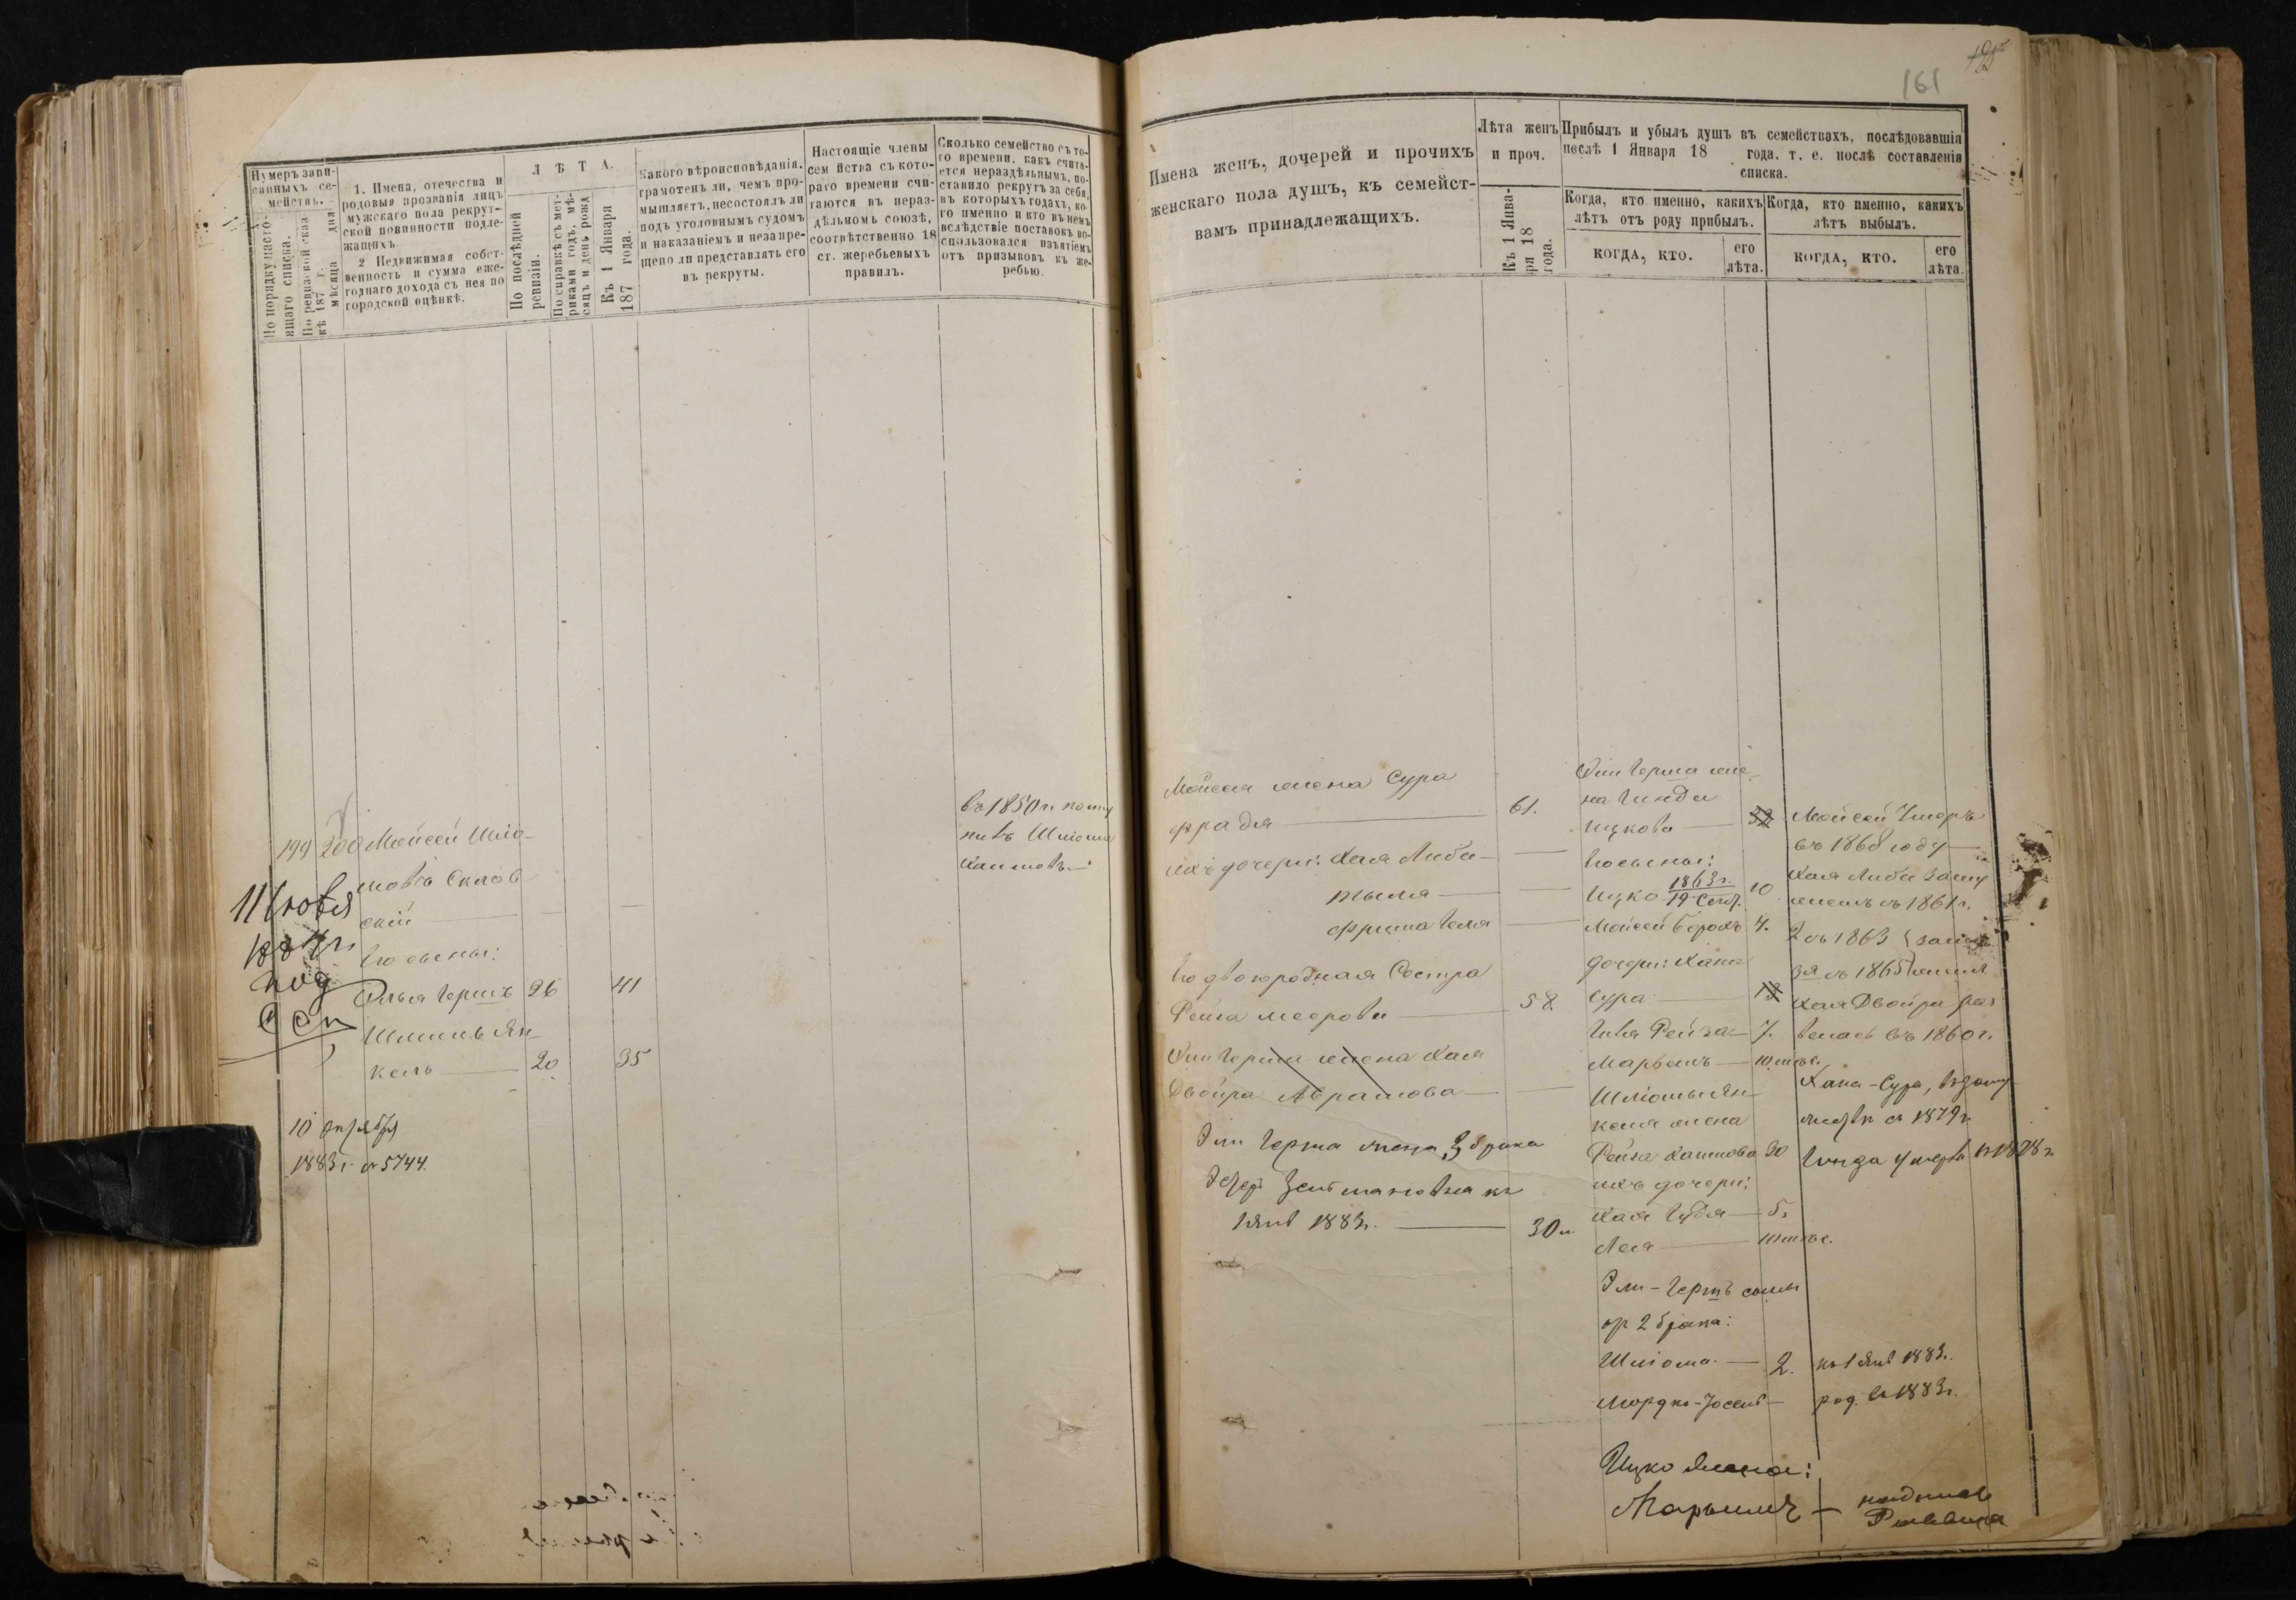 Нумеръ запи-
санныхъ се-
мействъ.
По порядку насто-
ящаго списка.
По ревизской сказ
кѣ 187 г. дня
мѣсяца
1. Имена, отечества и
родовыя прозванія лицъ
мужскаго пола рекрут-
ской повинности подле-
жащихъ.
2 Недвижимая собст-
венность и сумма еже-
годнаго дохода съ нея по
городской оцѣнкѣ.
ЛѢТА.
По послѣдней
ревизіи.
По справкѣ съ мет-
риками годъ, мѣ-
сяцъ и день рожд
Къ 1 Января
187 года.
Какого вѣроисповѣданія,
грамотенъ ли, чемъ про-
мышляетъ, несостоялъ ли
подъ уголовнымъ судомъ
и наказаніемъ и незапре-
щено ли представлять его
въ рекруты.
Настоящіе члены
сем йства съ кото-
раго времени счи-
таются въ нераз-
дѣльномъ союзѣ,
соотвѣтственно 18
ст. жеребьевыхъ
правилъ.
Сколько семейство съ то-
го времени, какъ счита-
ется нераздѣльнымъ, по-
ставило рекрутъ за себя,
въ которыхъ годахъ, ко-
го именно и кто въ немъ
вслѣдствіе поставокъ во-
спользовался изъятіемъ
отъ призывовъ къ же-
ребью.
въ 1850 г. посту
пилъ Шліома
Хаимовъ
199 200 Мойсей Шліо-
мовъ
скій
11 Іюня
его сыны:
Эльи Гершъ 26 41
Шліома Ян-
кель 20 35
10 октября
1883 г. № 5744.
161
195
Имена женъ, дочерей и прочихъ
женскаго пола душъ, къ семейст-
вамъ принадлежащихъ.
Лѣта женъ
и проч.
Къ 1 Янва-
ря 18
года.
Прибылъ и убылъ душъ въ семействахъ, послѣдовавшія
послѣ 1 Января 18 года. т. е. послѣ составленія
списка.
Когда, кто именно, какихъ
лѣтъ отъ роду прибылъ.
КОГДА, КТО.
его
лѣта.
Когда, кто именно, какихъ
лѣтъ выбылъ.
КОГДА, КТО.
его
лѣта.
Мойсея жена Сура
Фрадя 61.
ихъ дочери: Хая Либа
Фрима Геля
его двоюродная Сестра
Рейза Меерова 58
Эли Герша жена Хая
Двойра Абрамова
Эли Герша жена 3 брака
Эстеръ Зейлмановна къ
1 янв 1883 г. 30 л.
Эли Герша же-
на Гинда
Ицкова 32
его сыны:
Ицко 1863 г. 19 Сент. 10
Мойсей Борохъ 4.
дочери: Хана
Сура 12
Гитля Рейза 7.
Марьямъ 10 мѣс.
Шліомы Ян-
келя жена
Рейза Хаимова 30
ихъ дочери:
Хая Гудя 5.
Лея 10 мѣс.
Эли-Гершъ сыны
от 2 брака:
Шліома 2. къ 1 янв 1883.
Мордко-Іосей род. въ 1883 г.
Ицко жена:
Марьямъ
Мойсей Умеръ
въ 1868 году
Хая Либа заму
жемъ съ 1861 г.
2 съ 1863
зя съ 1865
Хая Двойра раз
велась въ 1860 г.
Хана-Сура,
съ 1879 г.
Гинда умерла въ 1878 г.